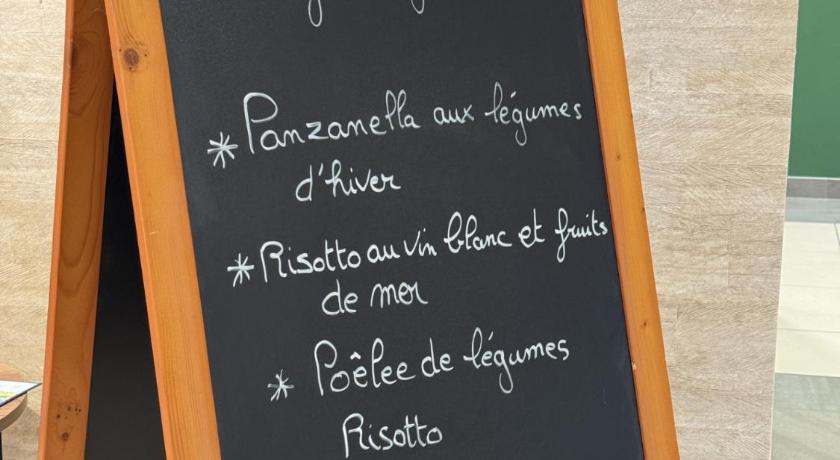 * Panzanella aux légumes
d'hiver
* Risotto au vin blanc et fruits
de mer
* Poêlee de légumes
Risotto